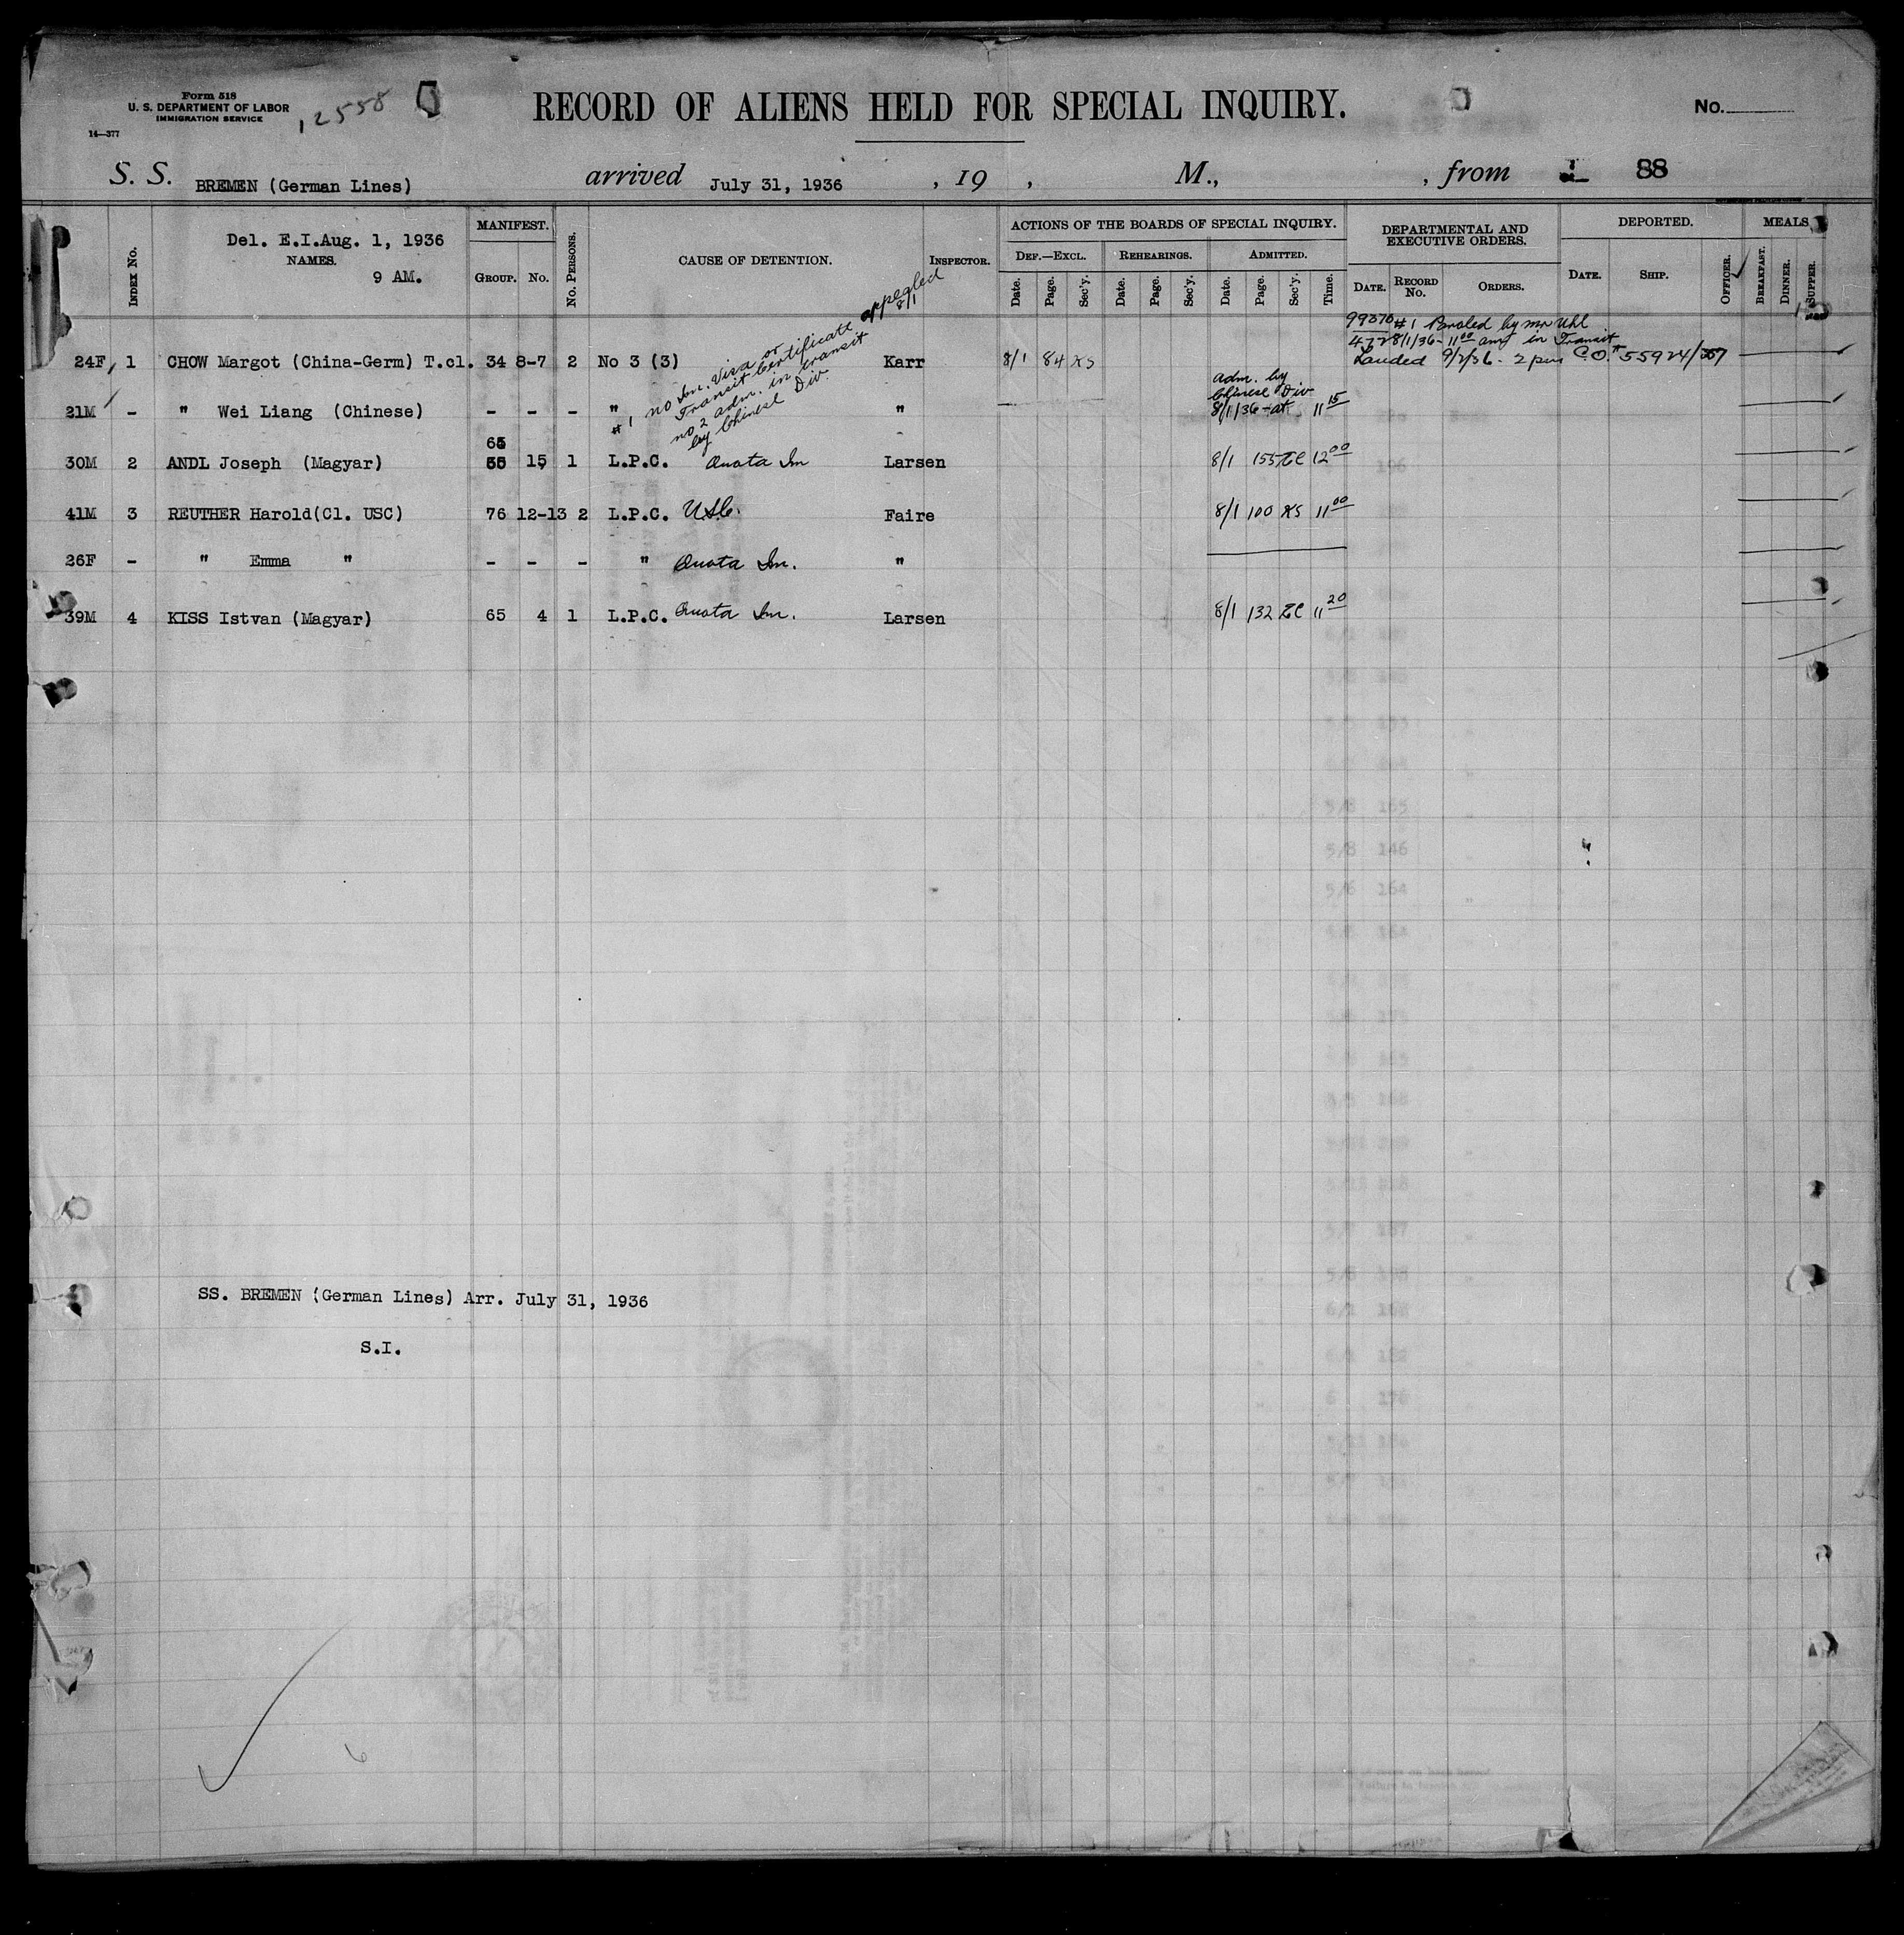 Form 518
U. S. DEPARTMENT OF LABOR
IMMIGRATION SERVICE
14—377
12558
RECORD OF ALIENS HELD FOR SPECIAL INQUIRY.
No.
S. S. BREMEN (German Lines) arrived July 31, 1936 , 19 , M., , from 88
INDEX No.
Del. E.I.Aug. 1, 1936
NAMES.
9 AM.
MANIFEST.
GROUP. No.
No. PERSONS.
CAUSE OF DETENTION.
INSPECTOR.
ACTIONS OF THE BOARDS OF SPECIAL INQUIRY.
DEF.—EXCL. REHEARINGS. ADMITTED.
Date. Page. Sec'y. Date. Page. Sec'y. Date. Page. Sec'y. Time.
DEPARTMENTAL AND
EXECUTIVE ORDERS.
DATE. RECORD No. ORDERS.
DEPORTED.
DATE. SHIP. OFFICER.
MEALS
BREAKFAST. DINNER. SUPPER.
appealed
8/1
99370 #1 Paroled by Mr Uhl
472 8/1/36- 11 00 am in Transit
24F 1 CHOW Margot (China-Germ) T.cl. 34 8-7 2 No 3 (3) Karr 8/1 84 KS Landed 9/2/36 - 2 pm C.O. # 55924/357
#1 no Im. Visa or
Transit Certificate
no 2 adm. in transit
by Chinese Div.
21M - " Wei Liang (Chinese) - - - " " adm. by
Chinese Div
8/1/36 - at 11 15
65
30M 2 ANDL Joseph (Magyar) 15 1 L.P.C. Quota Im Larsen 8/1 155 12 00
41M 3 REUTHER Harold(Cl. USC) 76 12-13 2 L.P.C. USC. Faire 8/1 100 KS 11 00
26F - " Emma " - - - " Quota Im. "
39M 4 KISS Istvan (Magyar) 65 4 1 L.P.C. Quota Im. Larsen 8/1 132 11 20
SS. BREMEN (German Lines) Arr. July 31, 1936
S.I.